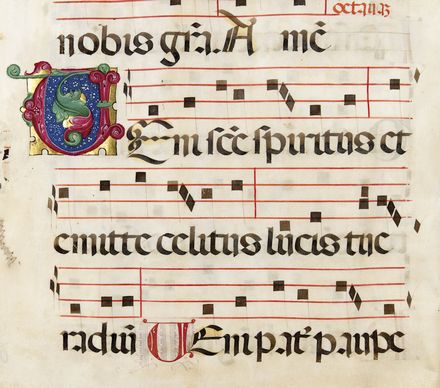 octauaꝫ
nobis gr̄a. A mē
VEni scē spiritus et
emitte celitus lucis tue
radiū VEni pat̄ paupe